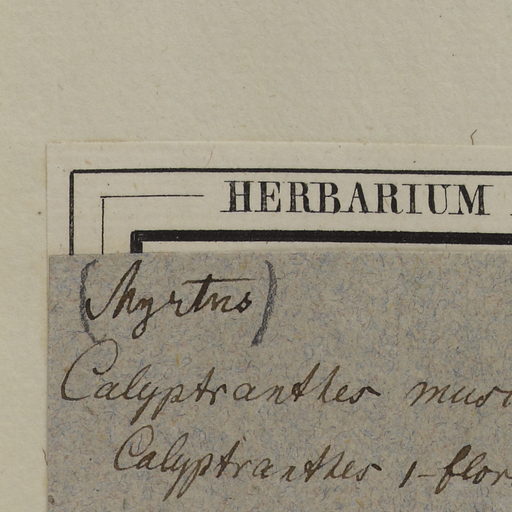 HERBARIUM
(Myrtus)
Calyptranthes
Calyptranthes 1-flor